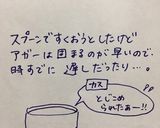 スプーンですくおうとしたけど
アガーは固まるのが早いので、
時すでに遅しだったり…。
カス
とじこめ
られたぁー!!